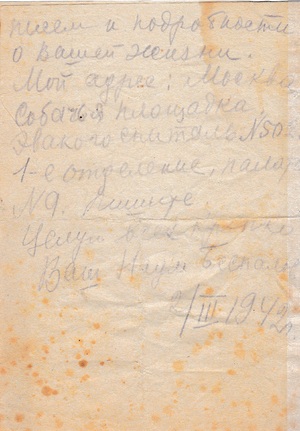 писем и подробности
о Вашей жизни.
Мой адрес: Москва
Собачья площадка,
Эвакогоспиталь №50
1-е отделение, пала
№9. Пишите.
Целую всех крепко
Ваш Наум
2/III 1942г